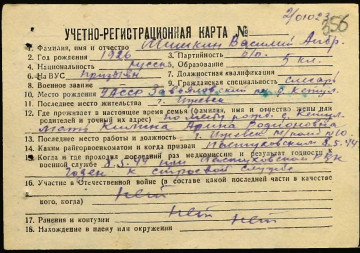 2/01023
56
УЧЕТНО-РЕГИСТРАЦИОННАЯ КАРТА №
1. Фамилия, имя и отчество Василий Андр.
2. Год рождения 1926 3. Партийность б/п
4. Национальность русск 5. Образование 5 кл.
6. № ВУС Призывн 7. Должностная квалификация
8. Военное звание 9. Гражданская специальность слесарь
10. Место рождения УАССР Завьяловский р-н, д. Кетул
11. Последнее место жительства г. Ижевск
12. Где проживает в настоящее время семья (имя и отчество жены или
родителей и точный их адрес) по месту рожд. д. Кетул.
Мать
13. Последнее место работы и должность г. Ижевск
14. Каким райгорвоенкоматом и когда призван 8.5.44
15. Когда и где проходил раз медкомиссию и результат годности к
военной службе 8.5.44 при РВК
Годен к строевой службе
16. Участие в Отечественной войне (в составе какой последней части в качестве
кого, когда) нет
17. Ранения и контузии нет
18. Нахождение в плену или окружении нет